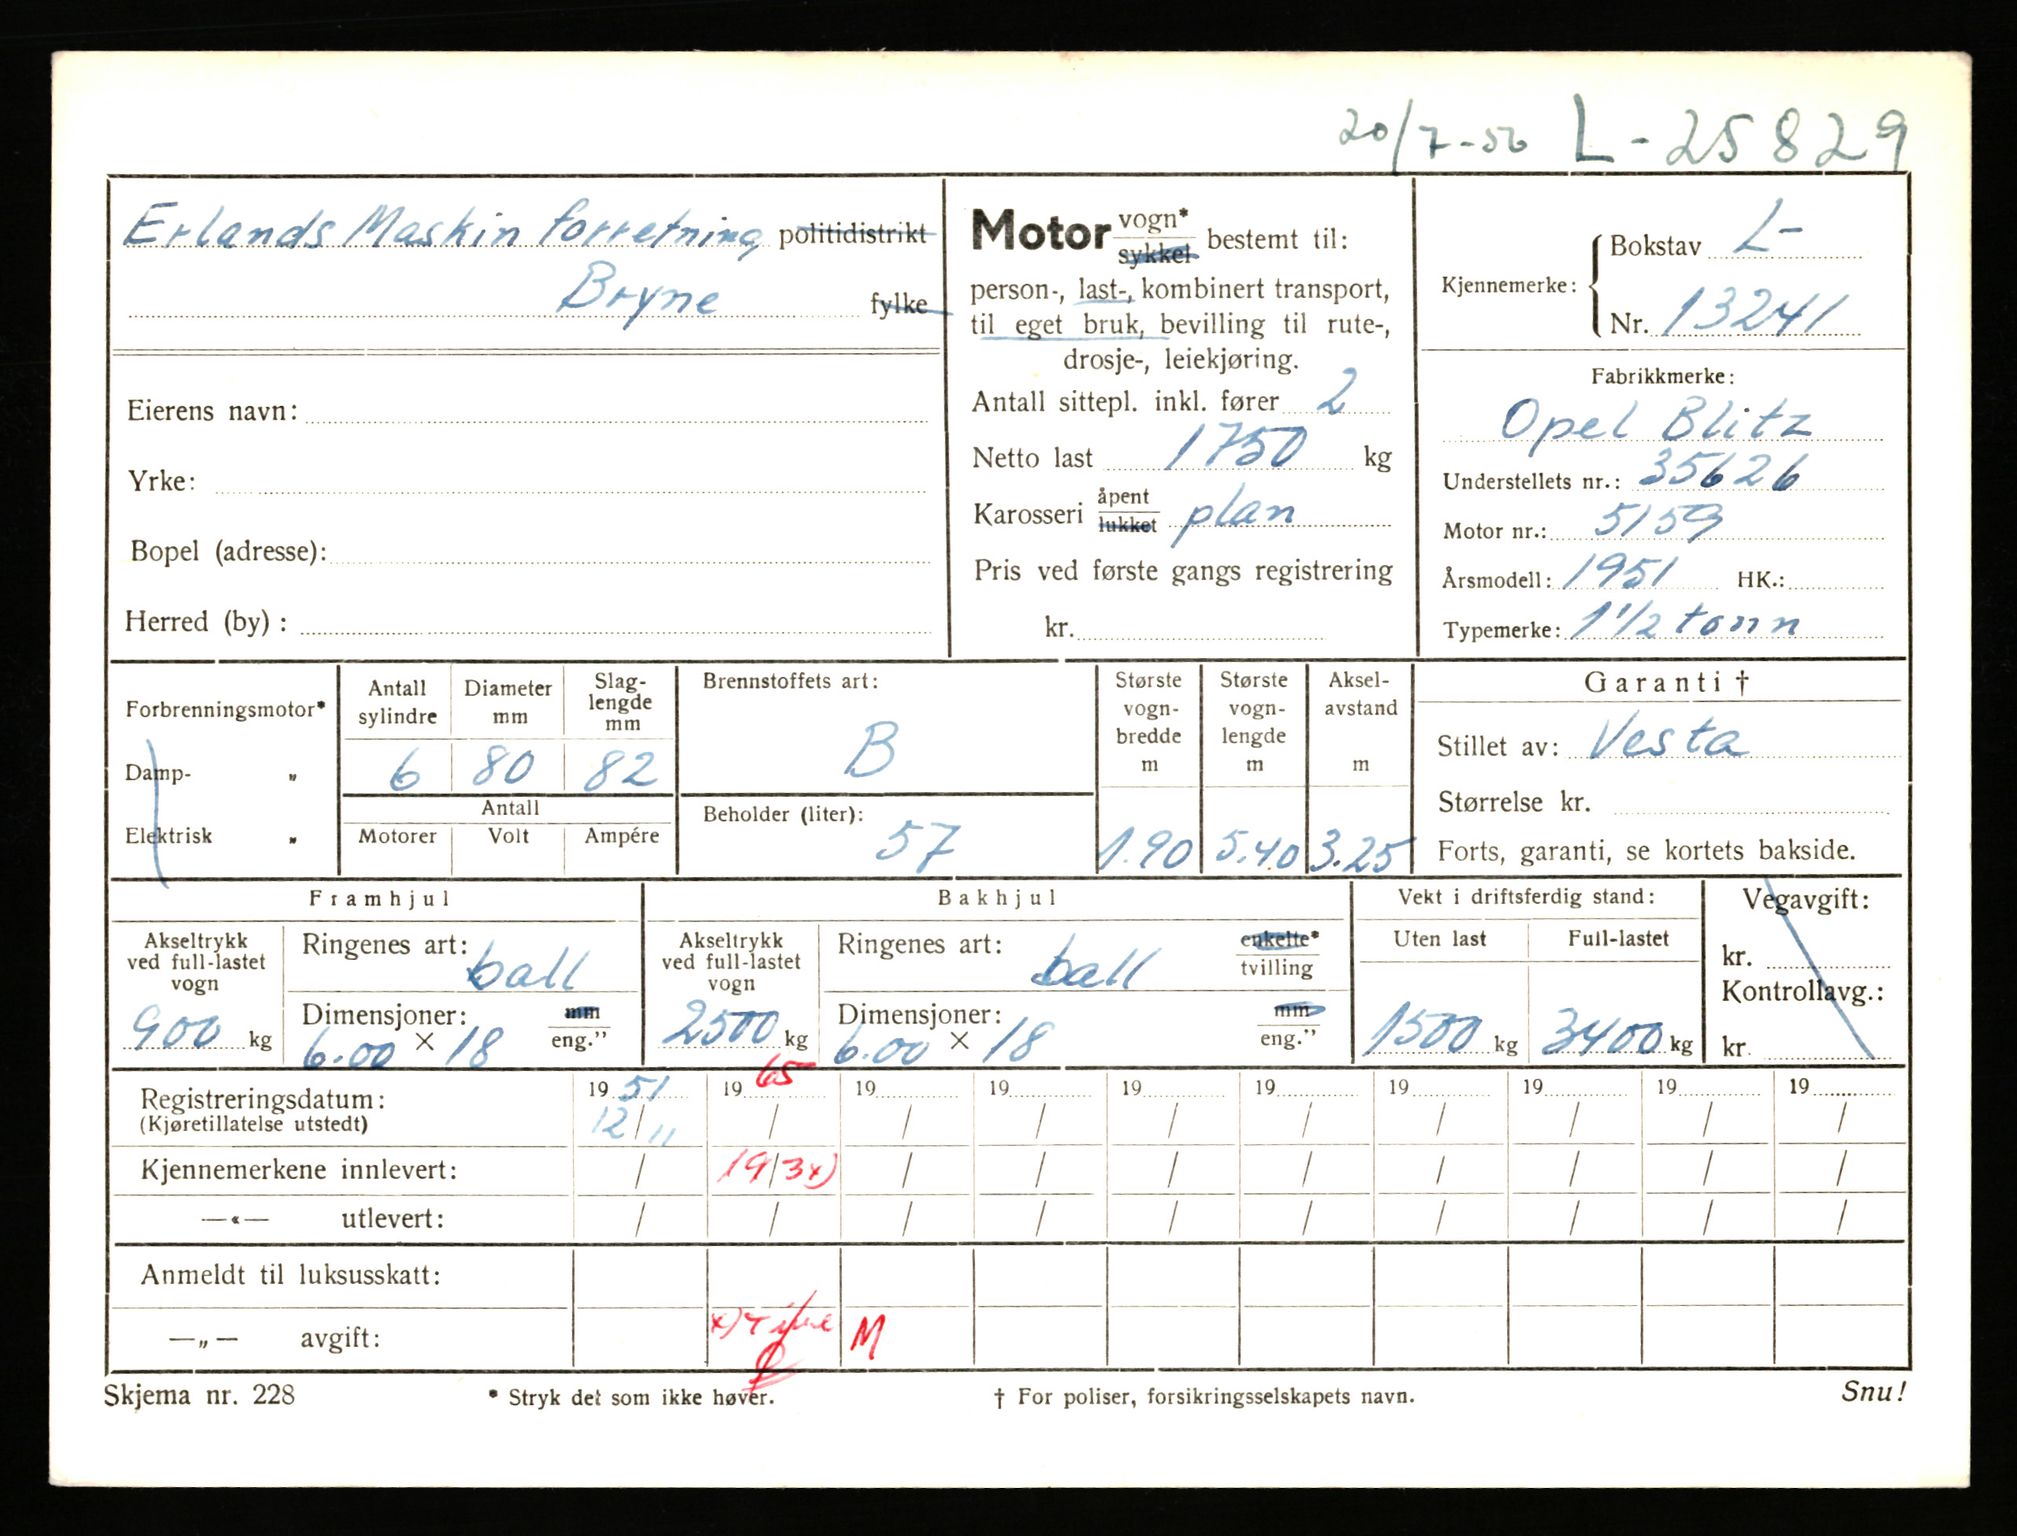 20/7-56 L-25829
Erlands Maskin forretning politidistrikt
Bryne fylke
Eierens navn:
Yrke:
Bopel (adresse):
Herred (by) :
Motor vogn* sykkel bestemt til:
person-, last-, kombinert transport,
til eget bruk, bevilling til rute-,
drosje-, leiekjøring.
Antall sittepl. inkl. fører 2
Netto last 1750 kg
Karosseri åpent lukket plan
Pris ved første gangs registrering
kr.
Kjennemerke: Bokstav L-
Nr. 13241
Fabrikkmerke:
Opel Blitz
Understellets nr.: 35626
Motor nr.: 5159
Årsmodell: 1951 HK.:
Typemerke: 1 1/2 tonn
Forbrenningsmotor*
Damp- „
Elektrisk „
Antall sylindre Diameter mm Slag-lengde mm
6 80 82
Antall
Motorer Volt Ampére
Brennstoffets art:
B
Beholder (liter):
57
Største vogn-bredde m Største vogn-lengde m Aksel-avstand m
1.90 5.40 3.25
Garanti †
Stillet av: Vesta
Størrelse kr.
Forts, garanti, se kortets bakside.
Framhjul
Akseltrykk ved full-lastet vogn
900 kg
Ringenes art: ball
Dimensjoner: mm eng."
6.00 × 18
Bakhjul
Akseltrykk ved full-lastet vogn
2500 kg
Ringenes art: ball enkelte* tvilling
Dimensjoner: mm eng."
6.00 × 18
Vekt i driftsferdig stand:
Uten last Full-lastet
1500 kg 3400 kg
Vegavgift:
kr.
Kontrollavg.:
kr.
19 51 19 65 19 19 19 19 19 19 19 19
Registreringsdatum: 12/11 / / / / / / / / /
(Kjøretillatelse utstedt)
Kjennemerkene innlevert: / 19/3 x) / / / / / / / /
—«— utlevert: / / / / / / / / / /
Anmeldt til luksusskatt:
—„— avgift: x) M
Skjema nr. 228 * Stryk det som ikke høver. † For poliser, forsikringsselskapets navn. Snu!